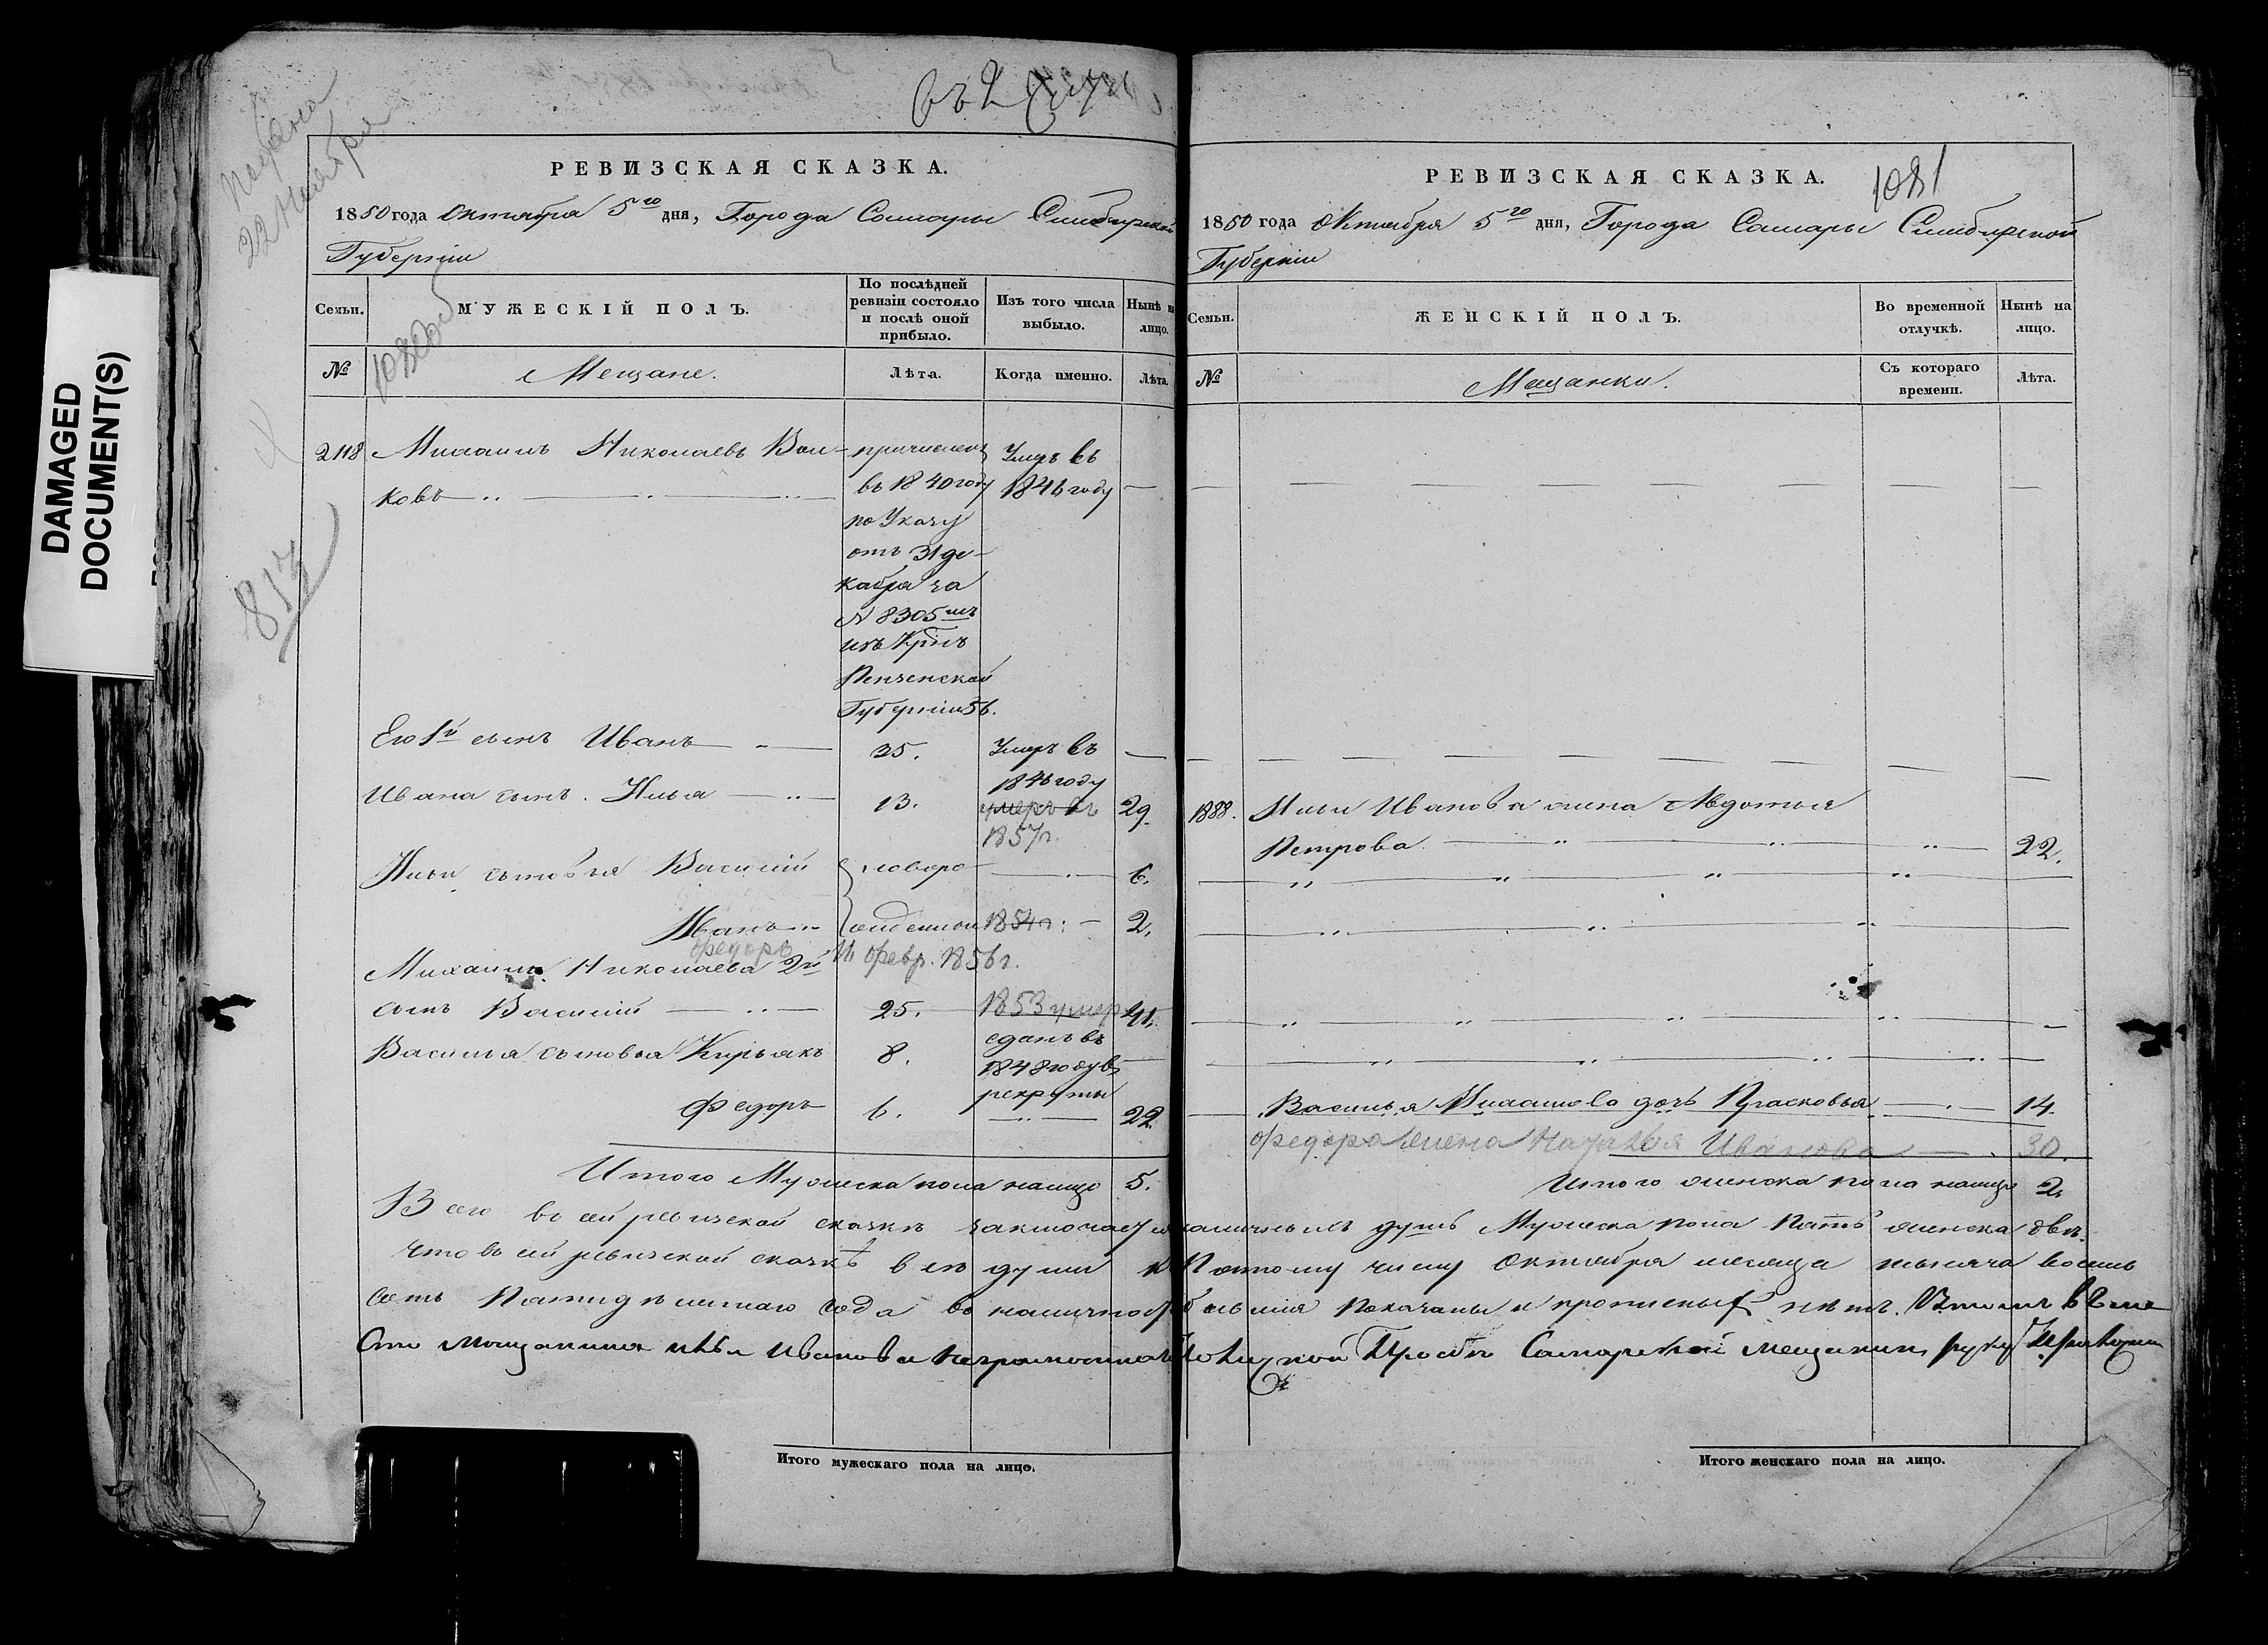 DAMAGED
DOCUMENT(S)
подана
22 Ноября
817
РЕВИЗСКАЯ СКАЗКА.
1850 года Октября 5го дня, Города Самары Симбирской
Губерніи
Семьи.
МУЖЕСКІЙ ПОЛЪ.
По послѣдней
ревизіи состояло
и послѣ оной
прибыло.
Изъ того числа
выбыло.
Нынѣ на
лицо.
№
Мещане.
Лѣта.
Когда именно.
Лѣта.
2118 Михаилъ Николаевъ Вол- причисленъ Умеръ въ
ковъ въ 1840 году 1846 году
по Указу
отъ 31 де-
кабря за
N 8305мъ
изъ
Пензенской
Губерніи 56.
Его 1й сынъ Иванъ 35. Умеръ въ
1846 году
Ивана сынъ Илья 13. умеръ въ 29.
1857г.
Ильи сыновья Василій новоро- 6.
Иванъ жденные 1854г. 2.
Федоръ 11 февр. 1856г.
Михаила Николаева 2й
сынъ Василій 25. 1853 умер 41.
Василья сыновья Кирьякъ 8. сданъ въ
1848 году въ
рекруты
Федоръ 6. 22.
Итого Мужеска пола налицо 5.
РЕВИЗСКАЯ СКАЗКА.
1081
1850 года Октября 5го дня, Города Самары Симбирской
Губерніи
Семьи.
ЖЕНСКІЙ ПОЛЪ.
Во временной
отлучкѣ.
Нынѣ на
лицо.
№
Мещанки.
Съ котораго
времени.
Лѣта.
1888. Ильи Иванова жена Авдотья
Петрова 22.
Василья Михайлова дочь Прасковья 14.
Федора жена Наталья Иванова 30.
Итого женска пола налицо 2.
Всего въ сей ревизской сказкѣ заключается наличныхъ душъ Мужеска пола пять женска двѣ.
Что въ сей ревизской сказкѣ всѣ души къ пятому числу Октября месяца тысяча восемь
сотъ пятидесятаго года въ наличности бывшія показаны и прописныхъ нѣтъ. Въ томъ вмѣ
сто мещанина Ильи Иванова неграмотнаго по личной прозбѣ Самарской мещанинъ руку приложи
Итого мужескаго пола на лицо.
Итого женскаго пола на лицо.